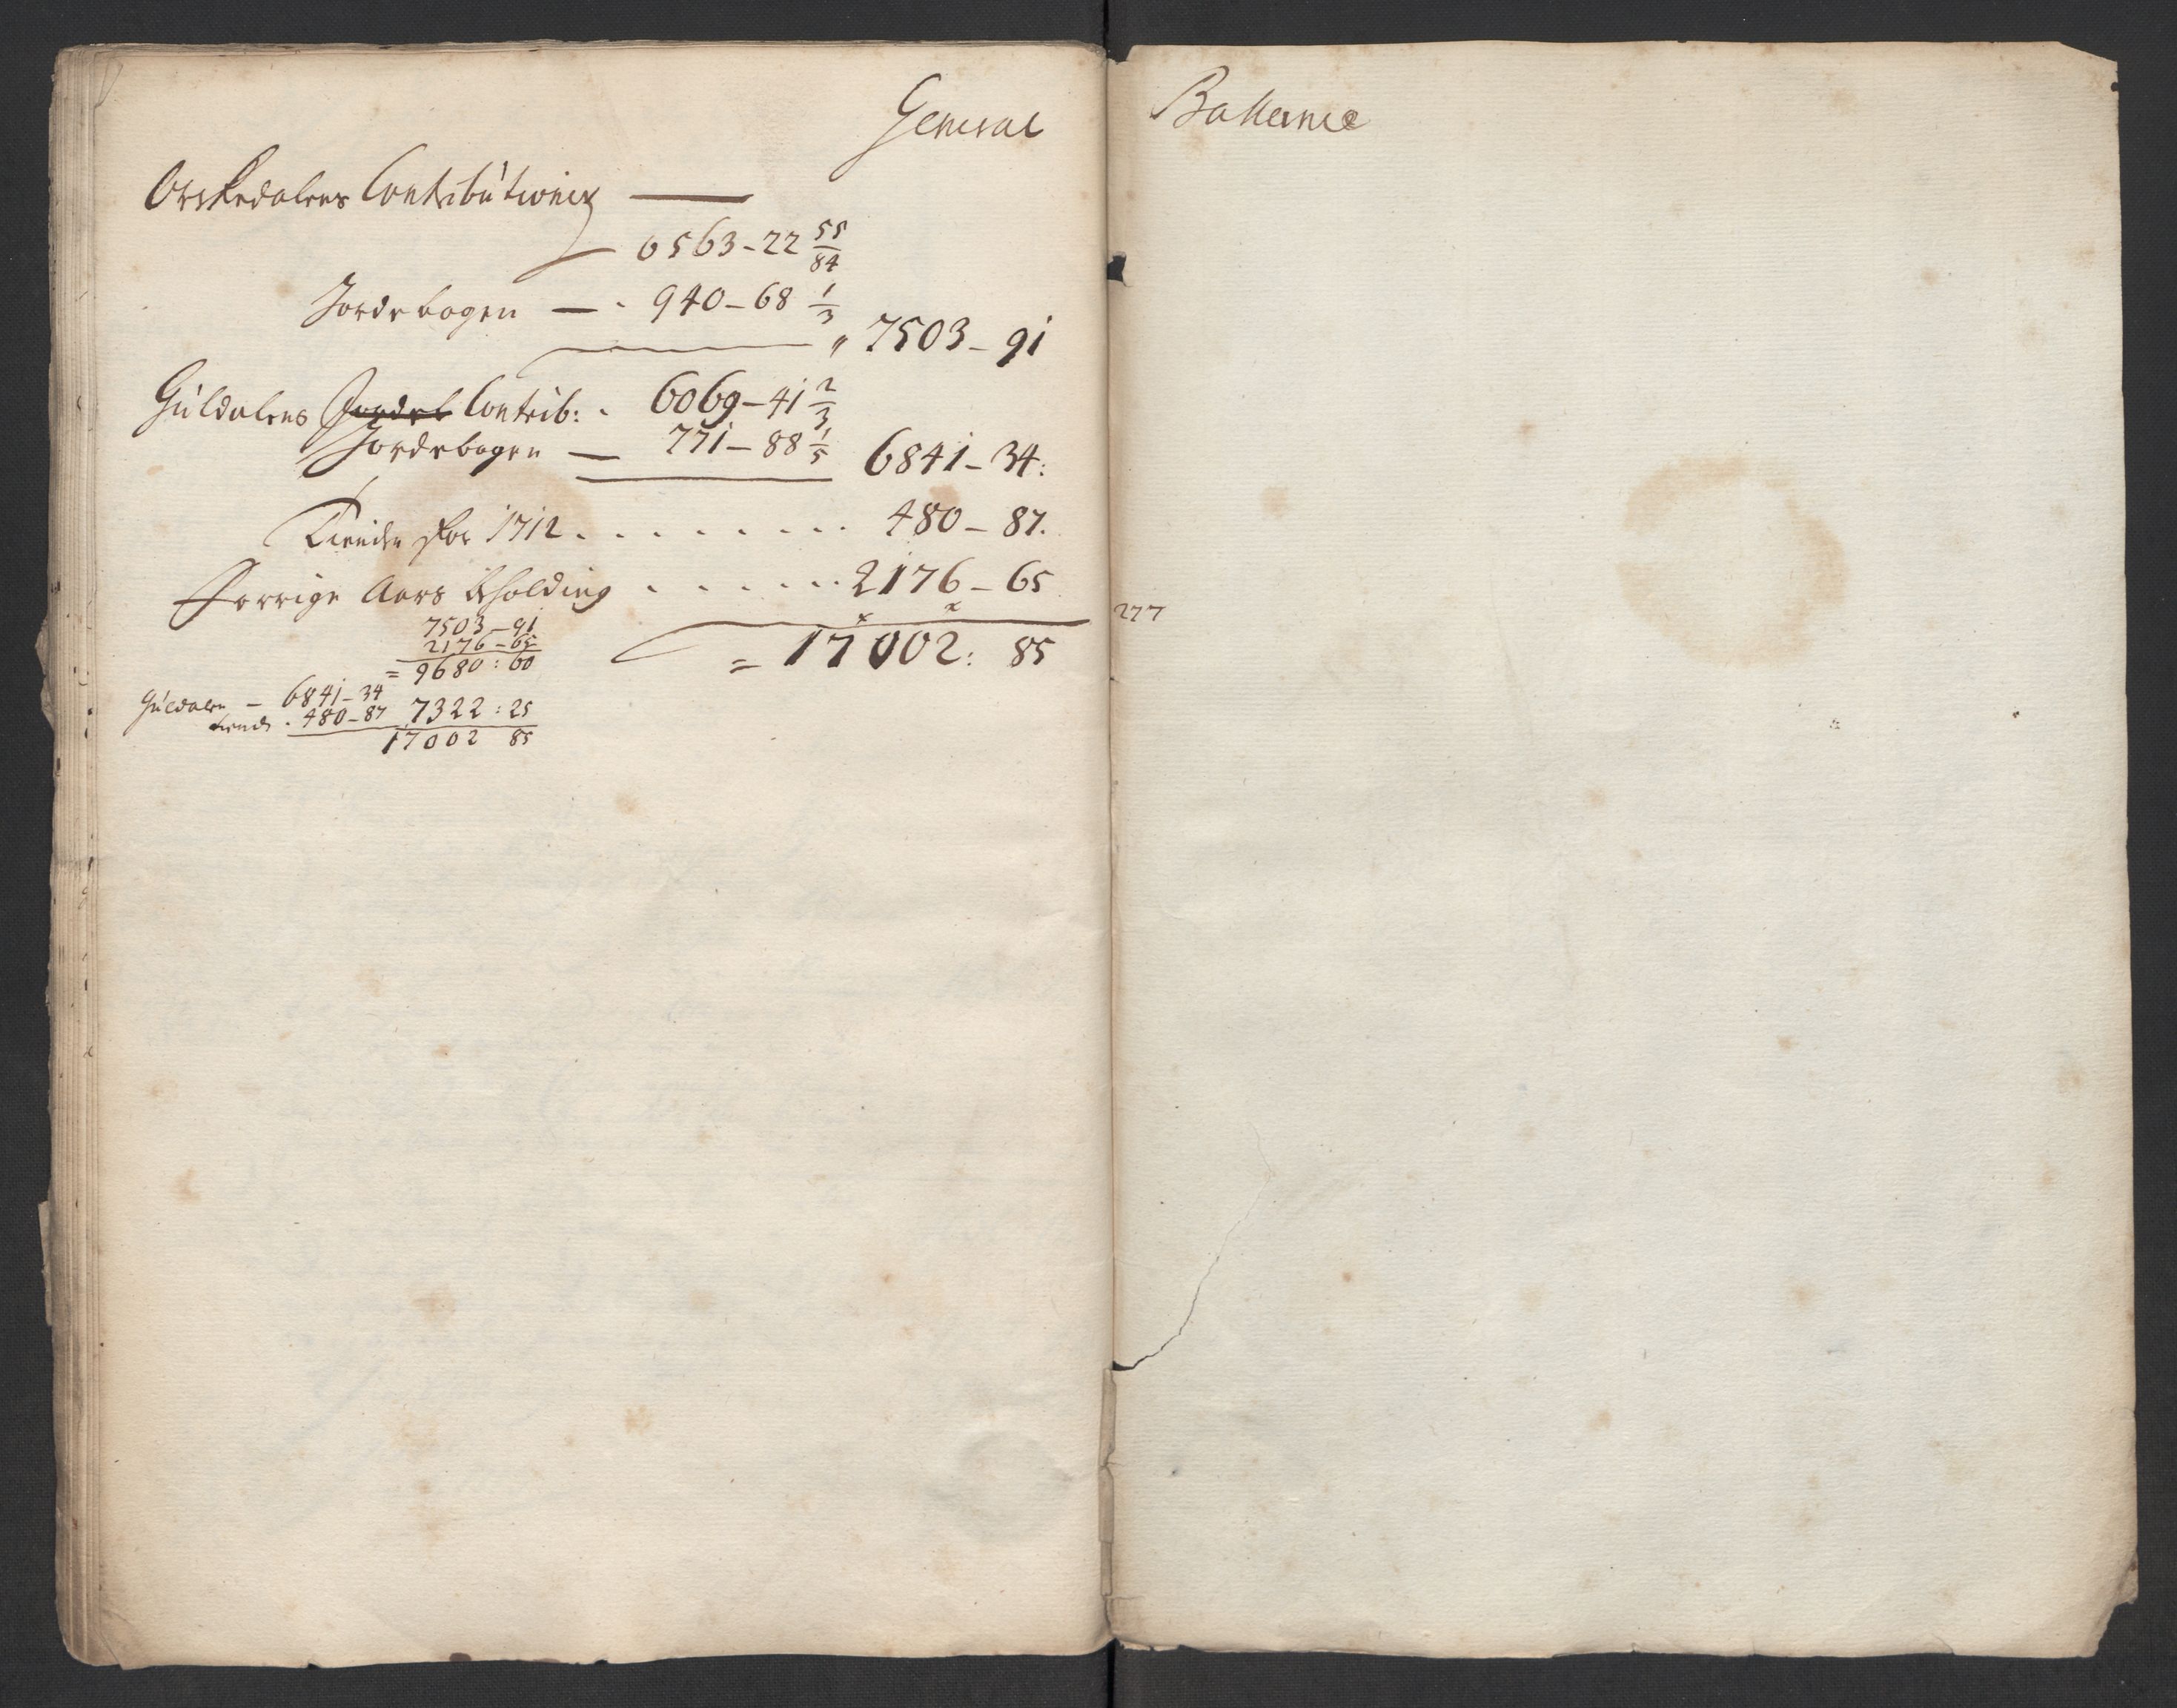 General Ballance
Orchedalens Contributioner
6563 - 22 55/84
Jordebogen — 940 - 68 1/3
" 7503 - 91
Guldalens Jordeb Contrib: . 6069 - 41 2/3
Jordebogen — 771 - 88 1/5 6841 - 34:
Tiende for 1712 . . . . . . . . . 480 - 87.
Forrige Aars Beholding . . . . . . 2176 - 65
= 17002: 85
7503 - 91
2176 - 65
= 9680: 60
Guldalen — 6841 - 34
tiende . 480 - 87 7322: 25
17002 85
277